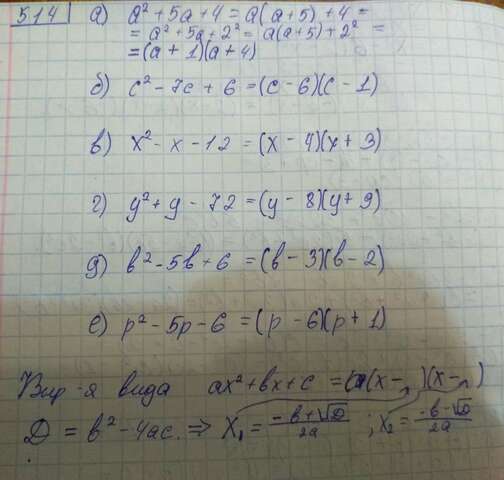 514 а) a² + 5a + 4 = a(a+5) + 4 =
= a² + 5a + 2² = a(a+5) + 2² =
= (a + 1)(a + 4)
б) c² - 7c + 6 = (c - 6)(c - 1)
в) x² - x - 12 = (x - 4)(x + 3)
г) y² + y - 72 = (y - 8)(y + 9)
д) b² - 5b + 6 = (b - 3)(b - 2)
е) p² - 5p - 6 = (p - 6)(p + 1)
Выр-я вида ax² + bx + c = a(x - )(x - )
D = b² - 4ac. ⇒ X₁ = (-b + √D)/2a ; X₂ = (-b - √D)/2a